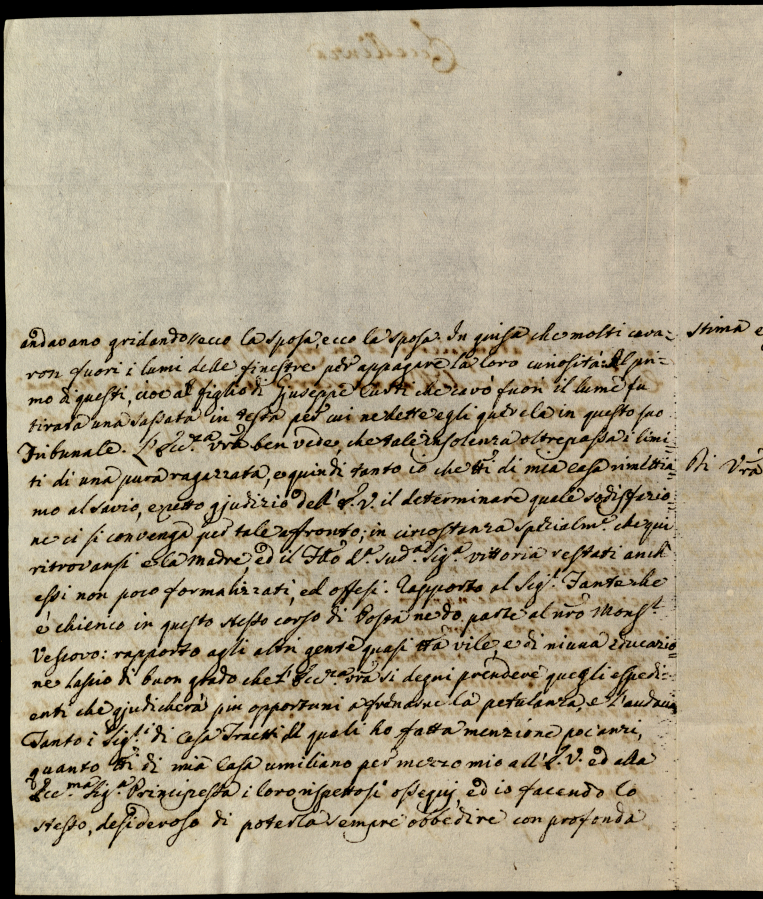 andavano gridando ecco la sposa, ecco la sposa. In guisa che molti cava=
ron fuori i lumi delle finestre per appagare la loro curiosità: Al pri=
mo di questi, cioè al figlio di Giuseppe che cavò fuori il lume fu
tirata una sassata in testa per cui ne dette egli querela in questo suo
Tribunale. L'Ecc.za Vrã ben vede, che tale insolenza oltrepassa i limi
ti di una pura ragazzata, e quindi tanto io che tti di mia casa rimettia
mo al savio, e retto giudizio dell'E.V. il determinare quale sodisfazio=
ne ci si convenga per tale affronto; in circostanza spezialm.e che qui
ritrovansi e la Madre, ed il della Sud.a Sig.a Vittoria restati anch'
essi non poco formalizzati, ed offesi. Rapporto al Sig.r che
è chierico in questo stesso corso di Posta ne dò parte al nrõ Mons.r
Vescovo: rapporto agli altri gente quasi ttã vile, e di niuna educazio=
ne lascio di buon grado che l'Ecc.za Vrã si degni prendere quegli espedi=
enti che giudicherà più opportuni a frenarne la petulanza, e l'audacia
Tanto i Sig.ri di Casa quali ho fatta menzione poc'anzi,
quanto tti di mia Casa umiliano per mezzo mio all'E.V. ed alla
Ecc.ma Sig.a Principessa i loro rispettosi ossequj, ed io facendo lo
stesso, desideroso di poterla sempre obbedire con profonda
stima e
Di Vrã